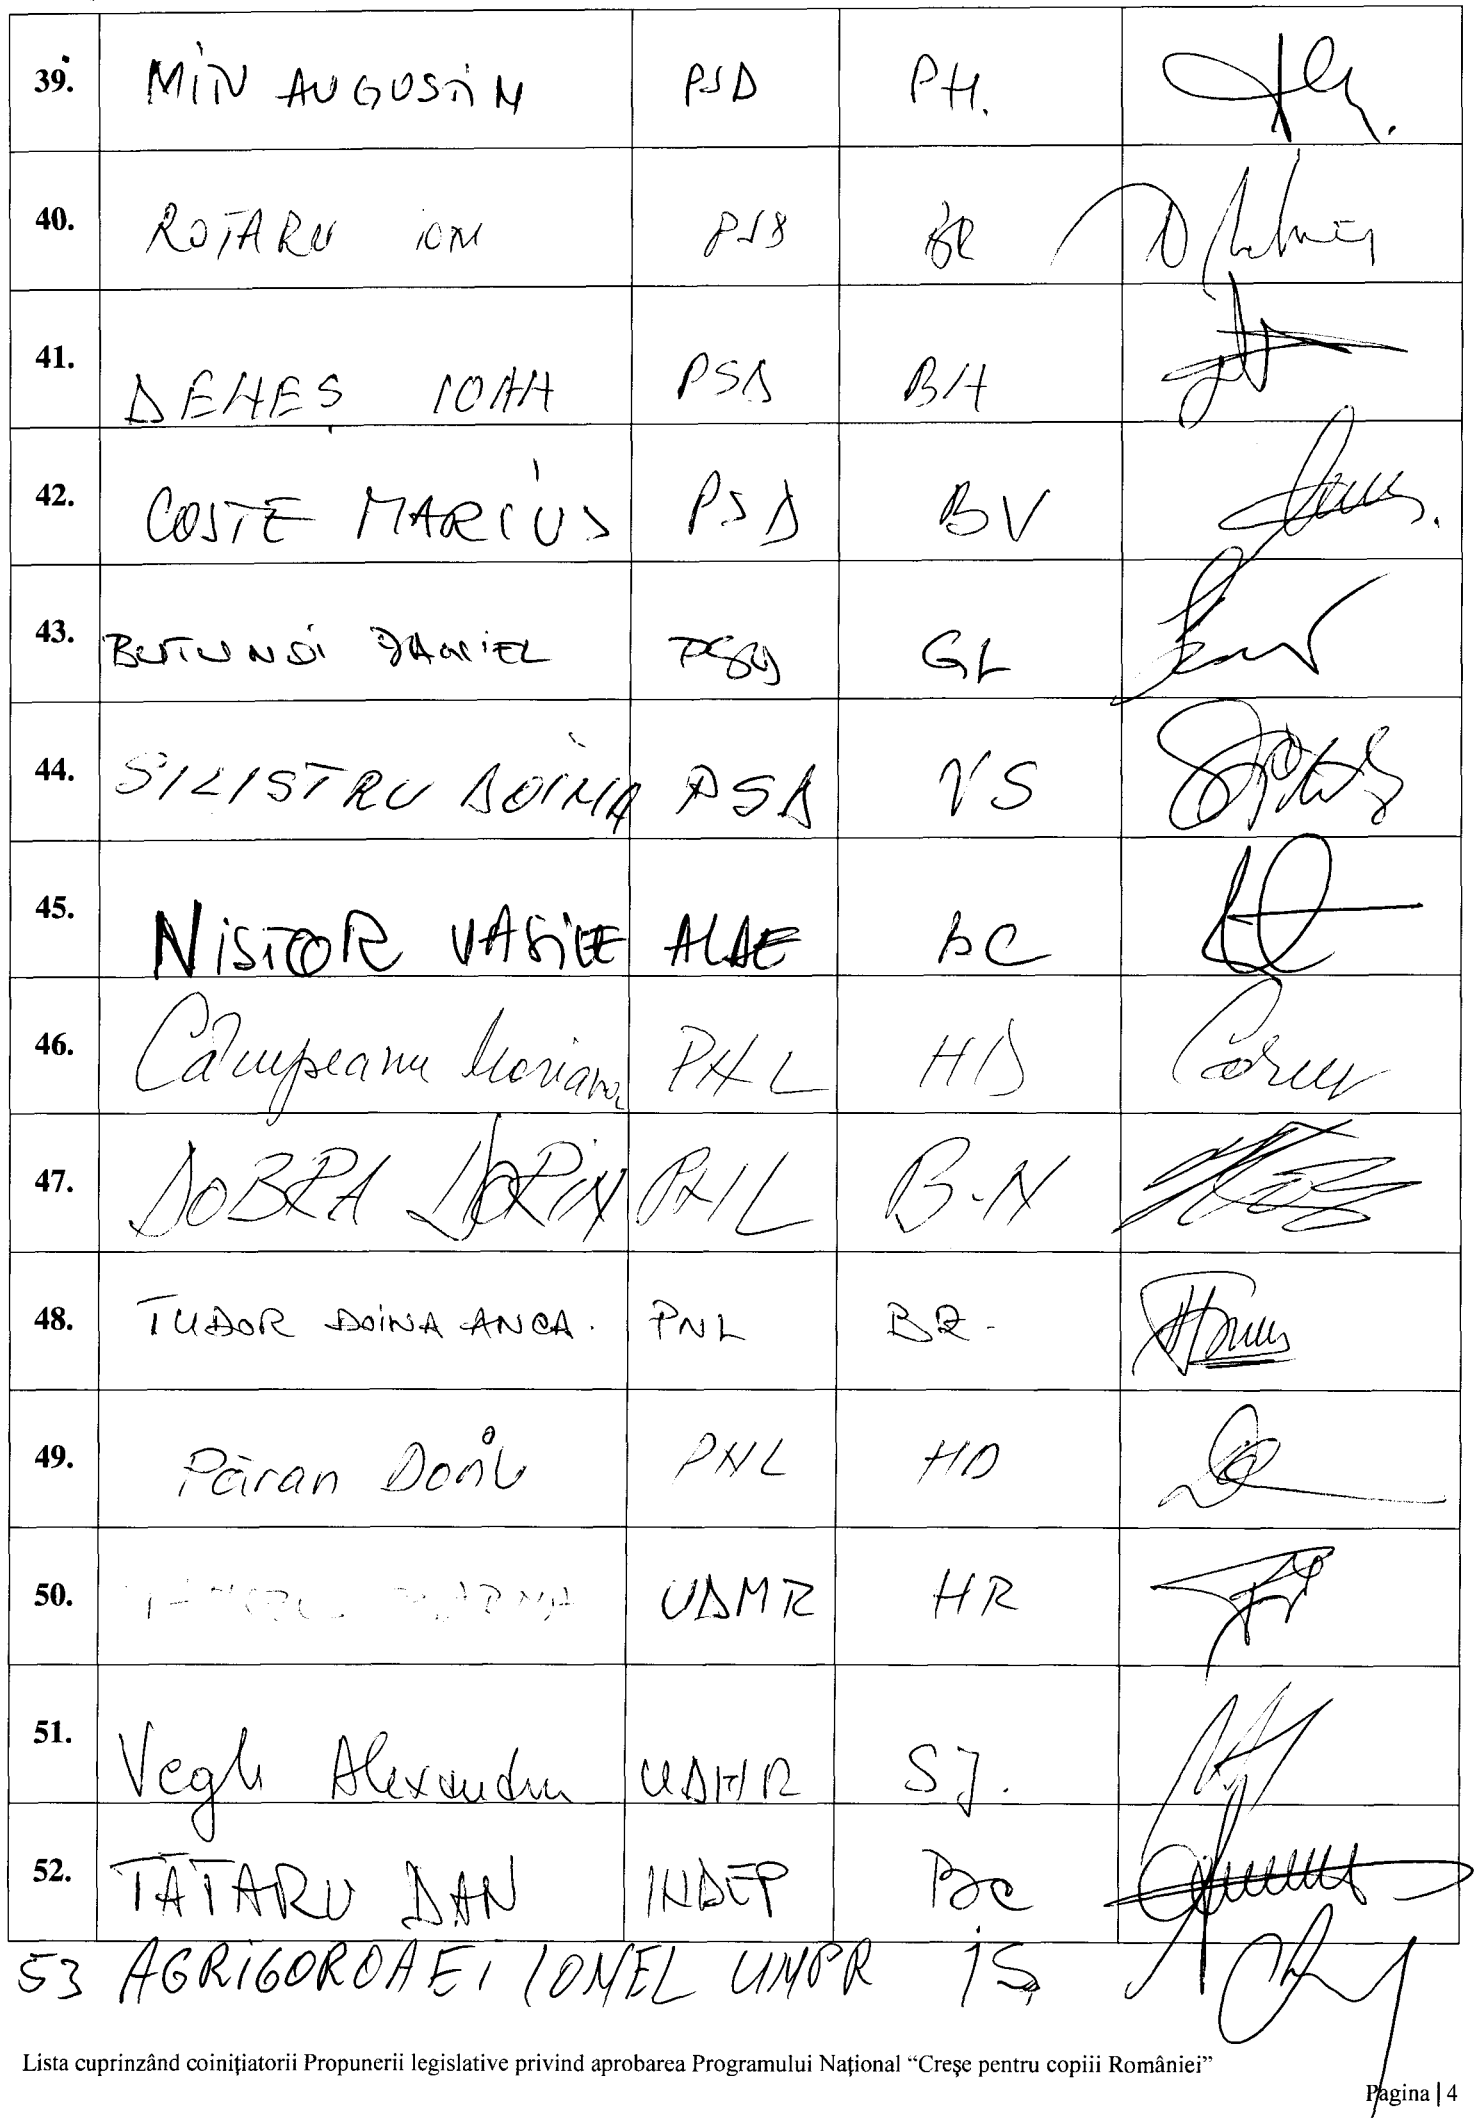 39. MIN AUGUSTIN PSD PH.
40. ROTARU ION PSD BR
41. DEHEȘ IOAN PSD BH
42. COSTE MARIUS PSD BV
43. BUTUNOI DANIEL PSD GL
44. SILISTRU DOINA PSD VS
45. NISTOR VASILE ALDE BC
46. Câmpeanu Mariana PNL HD
47. DOBRA DORIN PNL B-N
48. TUDOR DOINA ANCA. PNL BR-
49. Păran Dorel PNL HD
50. UDMR HR
51. Vegh Alexandru UDMR SJ.
52. TĂTARU DAN INDEP Bc
53 AGRIGOROAEI IONEL UNPR IS
Lista cuprinzând coinițiatorii Propunerii legislative privind aprobarea Programului Național “Creșe pentru copiii României”
Pagina | 4